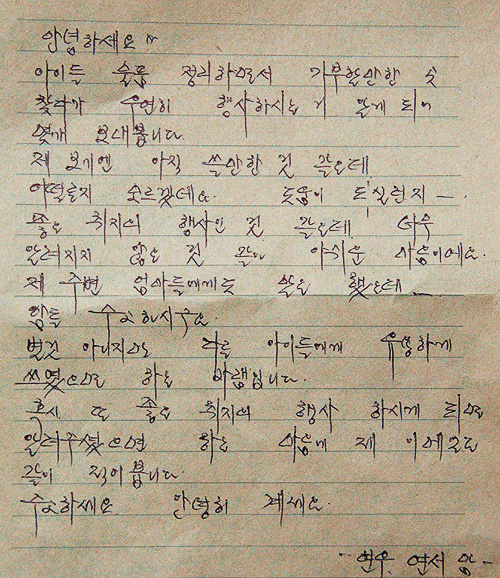 안녕하세요~
아이들 용품 정리하면서 기부할만한 곳
찾다가 우연히 행사하시는거 알게 되어
몇개 보내봅니다.
제 보기엔 아직 쓸만한 것 같은데
어떨른지 모르겠네요. 도움이 되실런지 -.
좋은 취지의 행사인 것 같은데 너무
알려지지 않은 것 같아 아쉬운 마음이에요.
제 주변 엄마들에게는 말은 했는데...
암튼 수고하시구요.
별것 아니지만 다른 아이들에게 유용하게
쓰였으면 하는 바램입니다.
혹시 또 좋은 취지의 행사 하시게 되면
알려주셨으면 하는 마음에 제 이메일도
같이 적어봅니다.
수고하세요 안녕히 계세요.
- 연우, 연서 맘 -